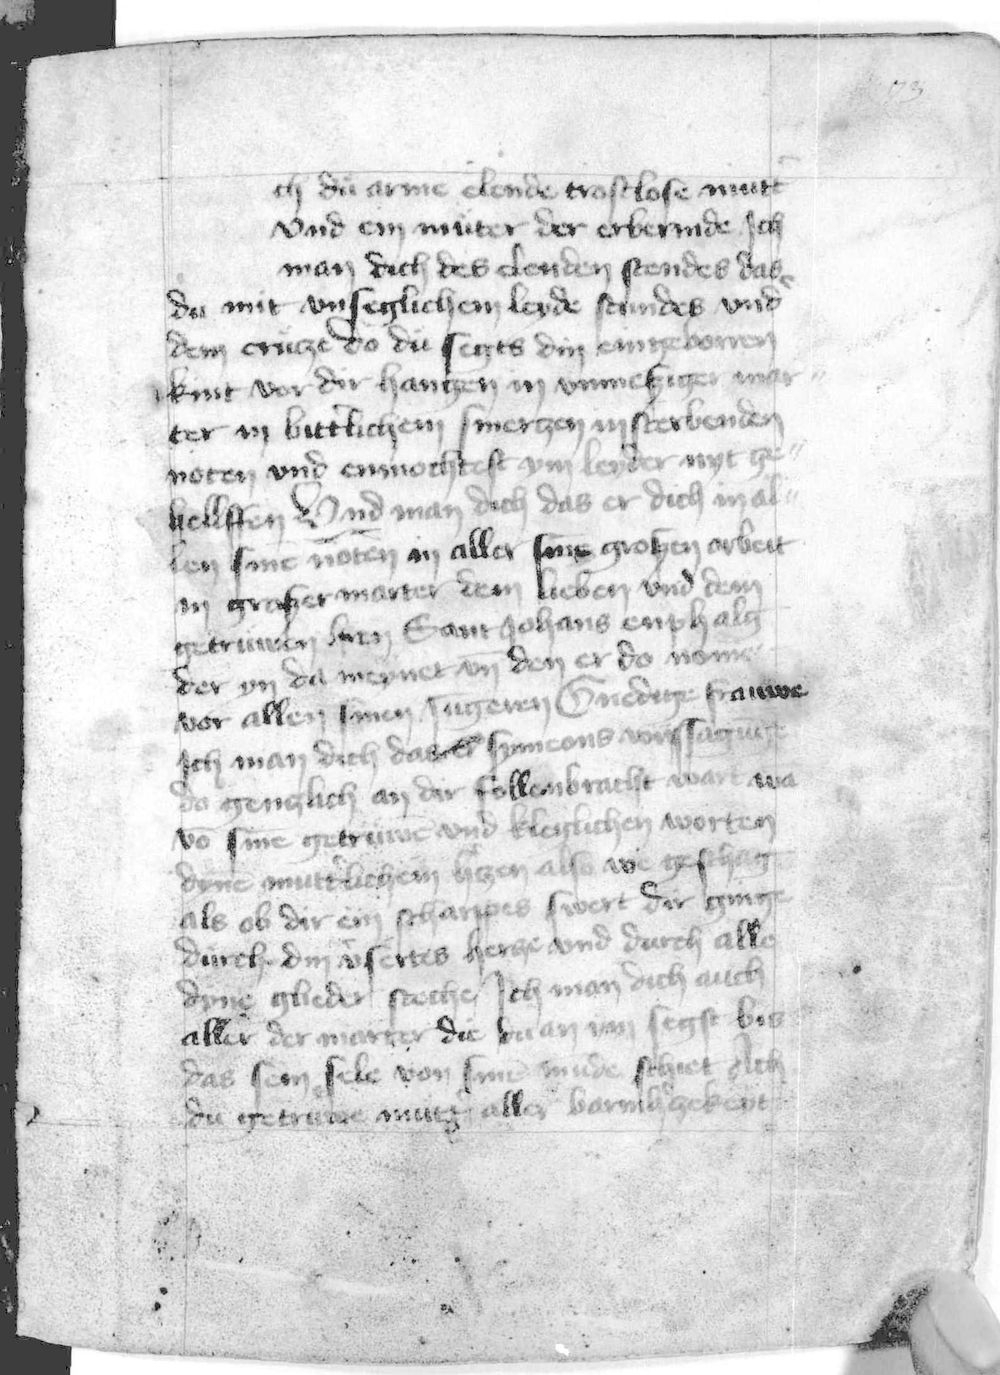 73
ch dü arme elende trostlose mutt̄
Vnd ein müter der erbermde Ich
man dich des elenden stendes das
du mit vnseglichem leyde stundes vnd
dem crücze do dü segts din eingeborren
kint vor dir hangen in vnmesziger mar〃
ter in bittlichem smerczen in sterbenden
nöten vnd enmochtest ym leyder nyt ge〃
helffen Vnd man dich das er dich in al〃
len sine nöten in aller sine groszen arbeit
in groszer marter dem lieben vnd dem
getrüwen Sant Johans enphalg
der yn da meynet vn̄ den er do nome
vor allen sinen Jungeren Gnedige frauwe
Ich man dich das er symeons vorssagunge
da genczlich an dir follenbracht wart wa
vo̅ sine getrüwe̅ vnd kleglichen worten
dyne mutt̓lichem h̓czen also we geschag
als ob dir ein scharppes swert dir ginge
durch din v̓sertes hercze vnd durch alle
dyne glieder steche Ich man dich auch
aller der marter die du an ym segst bis
das sein sele von sine munde schiet Ach
du getruwe mutt̓ aller barmh̓czekeyt